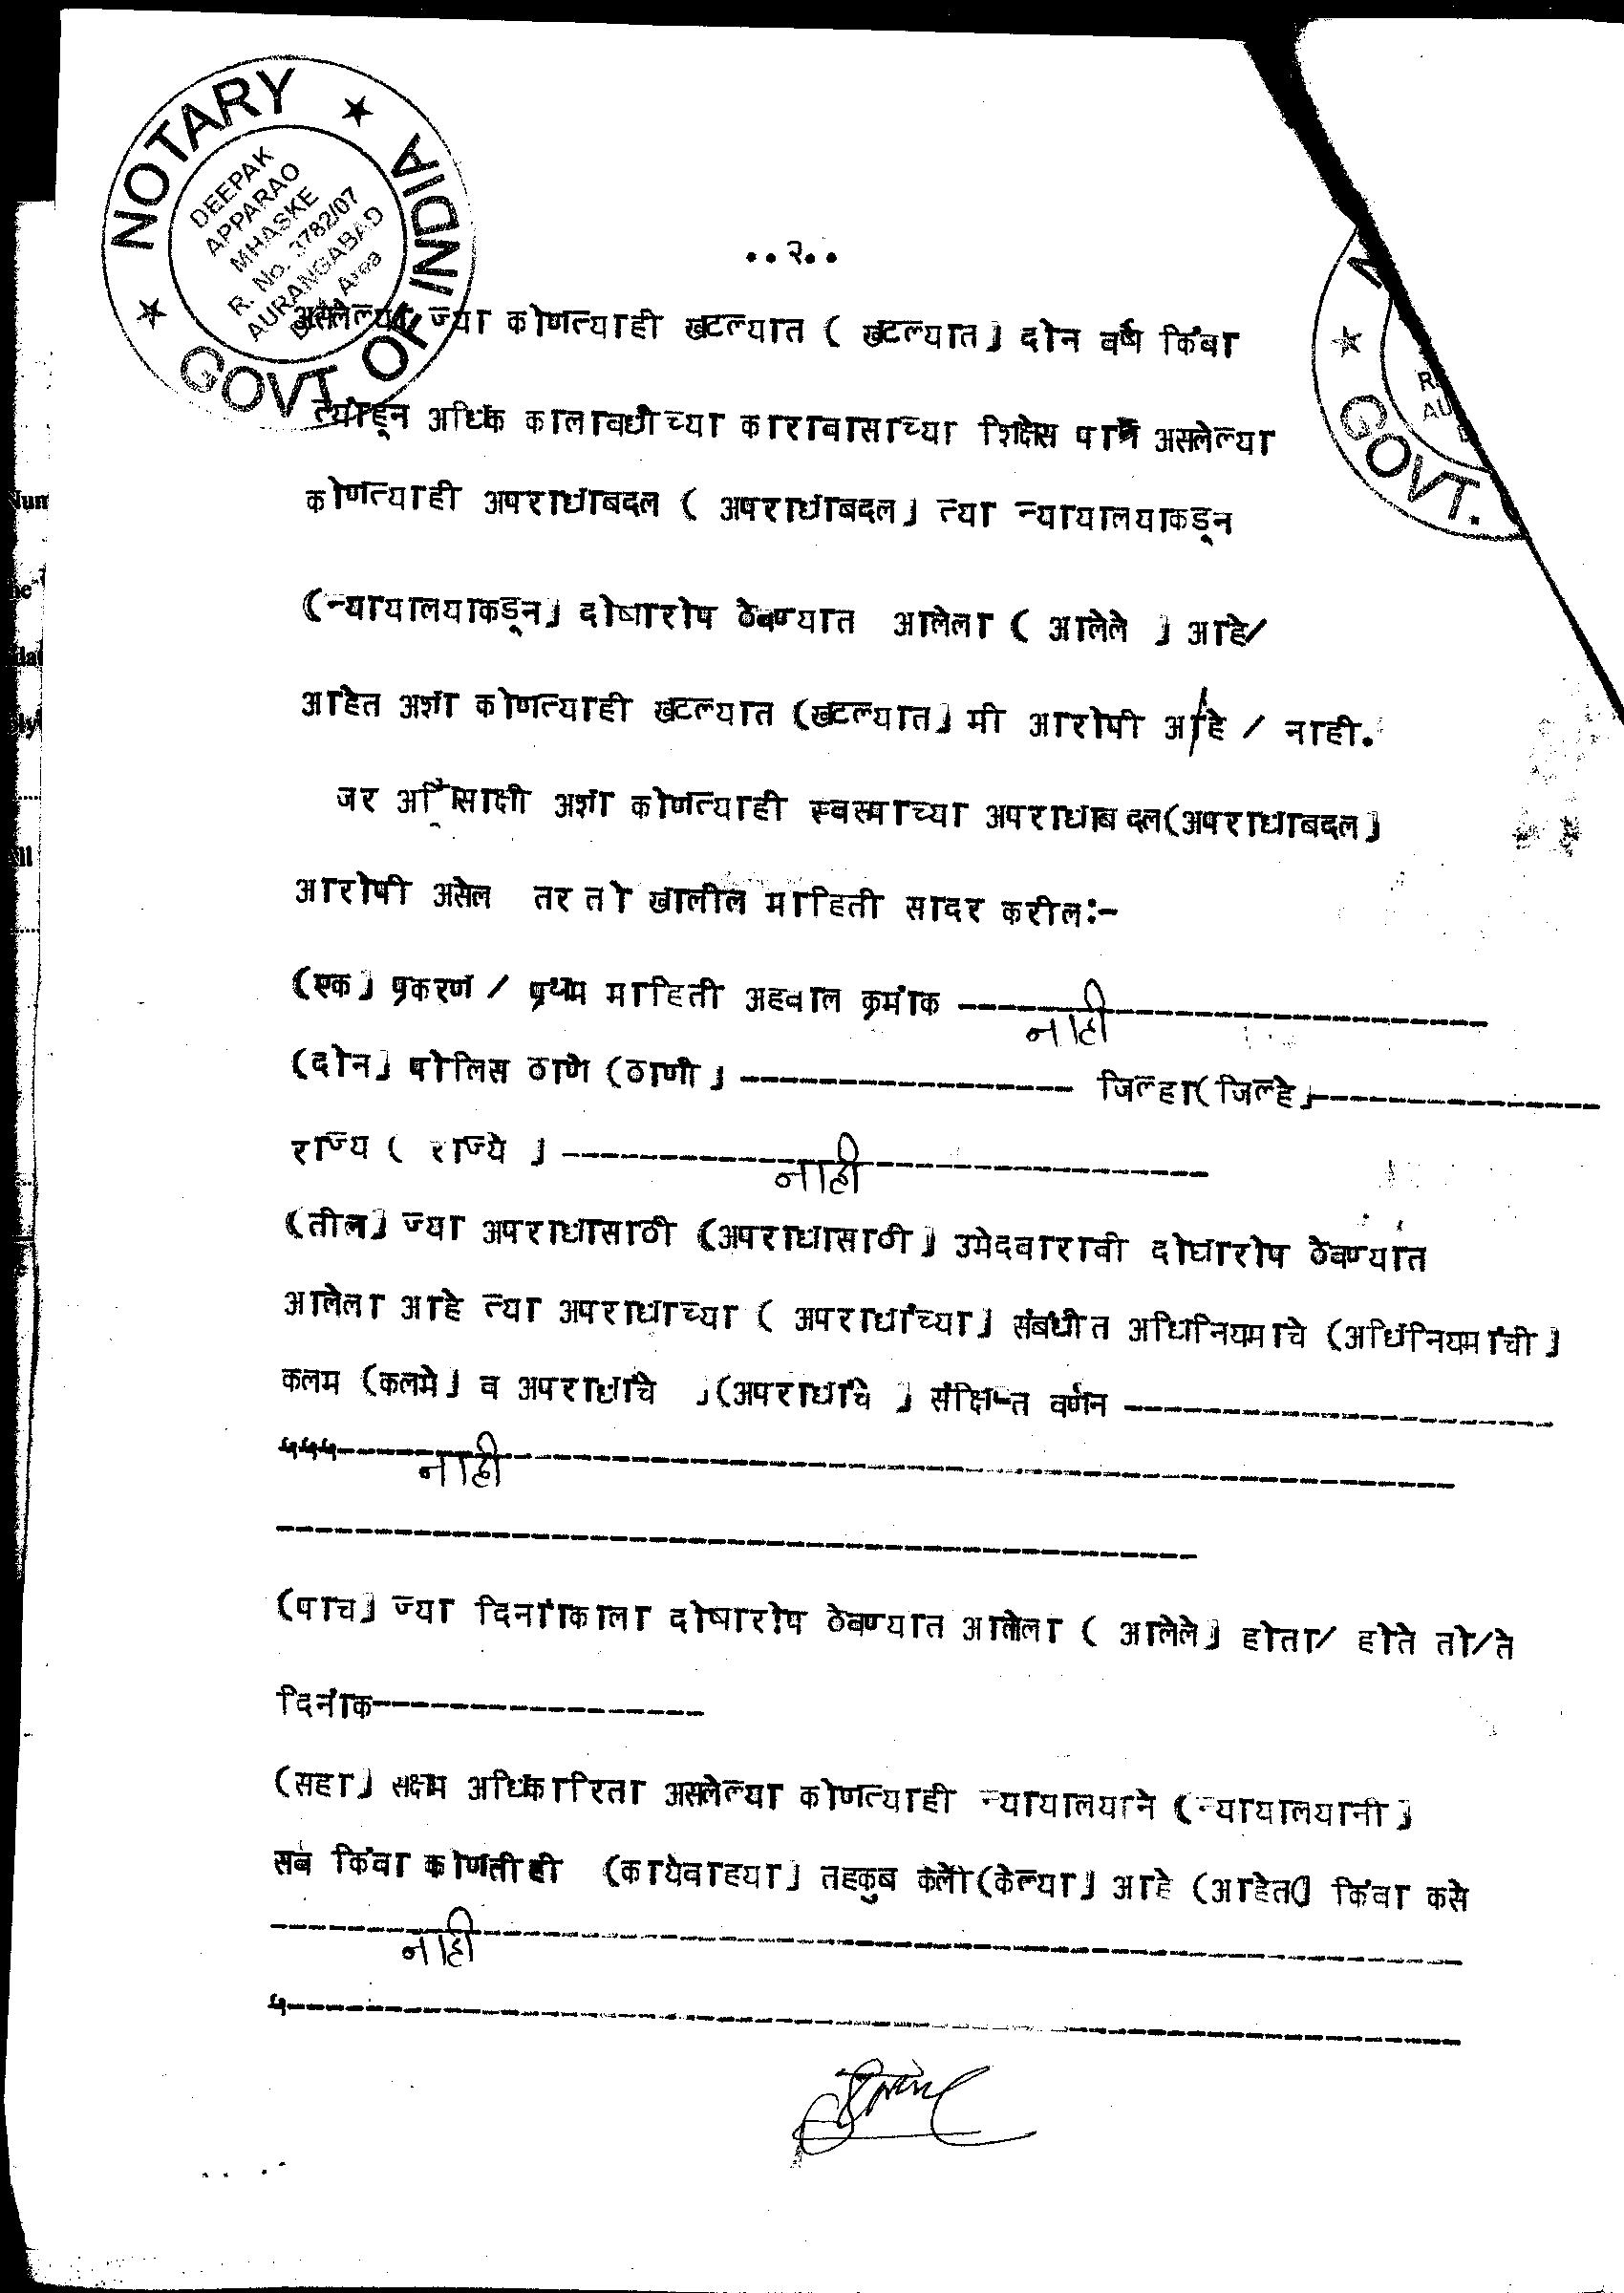 NOTARY ★ GOVT. OF INDIA ★
DEEPAK
APPARAO
MHASKE
R. No. 3782/07
AURANGABAD
Area
GOVT.
..२..
असलेल्या ज्या कोणत्याही खटल्यात ( खटल्यात) दोन वर्षे किंवा
त्यांहून अधिक कालावधीच्या कारावासाच्या शिक्षेस पात्र असलेल्या
कोणत्याही अपराधाबदल ( अपराधाबदल) त्या न्यायालयाकडून
(न्यायालयाकडून) दोषारोप ठेवण्यात आलेला ( आलेले ) आहे/
आहेत अशा कोणत्याही खटल्यात (खटल्यात) मी आरोपी आहे / नाही.
जर अभिसाक्षी अशा कोणत्याही स्वरूपाच्या अपराधाबदल(अपराधाबदल)
आरोपी असेल तर तो खालील माहिती सादर करील:-
(एक) प्रकरण / प्रथम माहिती अहवाल क्रमांक -------- नाही --------
(दोन) पोलिस ठाणे (ठाणी) ---------------- जिल्हा(जिल्हे)----------------
राज्य ( राज्ये ) -------- नाही --------
(तीन) ज्या अपराधासाठी (अपराधासाठी) उमेदवारावी दोषारोप ठेवण्यात
आलेला आहे त्या अपराधाच्या ( अपराधांच्या) संबंधीत अधिनियमाचे (अधिनियमांची)
कलम (कलमे) व अपराधांचे )(अपराधांचे ) संक्षिप्त वर्णन ----------------
५५५-------- नाही --------
--------------------------------
(पाच) ज्या दिनांकाला दोषारोप ठेवण्यात आलेला ( आलेले) होता/ होते तो/ते
दिनांक----------------
(सहा) सक्षम अधिकारिता असलेल्या कोणत्याही न्यायालयाने (न्यायालयानी)
सव किंवा कोणतीही (कार्यवाहया) तहकुब केली(केल्या) आहे (आहेत) किंवा कसे
-------- नाही --------
५--------------------------------